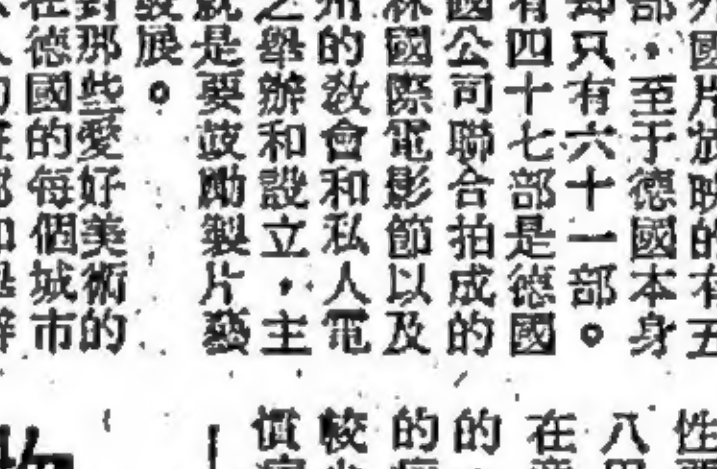 外國片放映的有五
部，至于德國本身
却只有六十一部。
有四十七部是德國
國公司聯合拍成的
林國際電影節以及
州的敎會和私人電
之舉辦和設立，主
就是要鼓勵製片藝
發展。
對那些愛好美術的
在德國的每個城市
性
八
在
的
的
較
慣